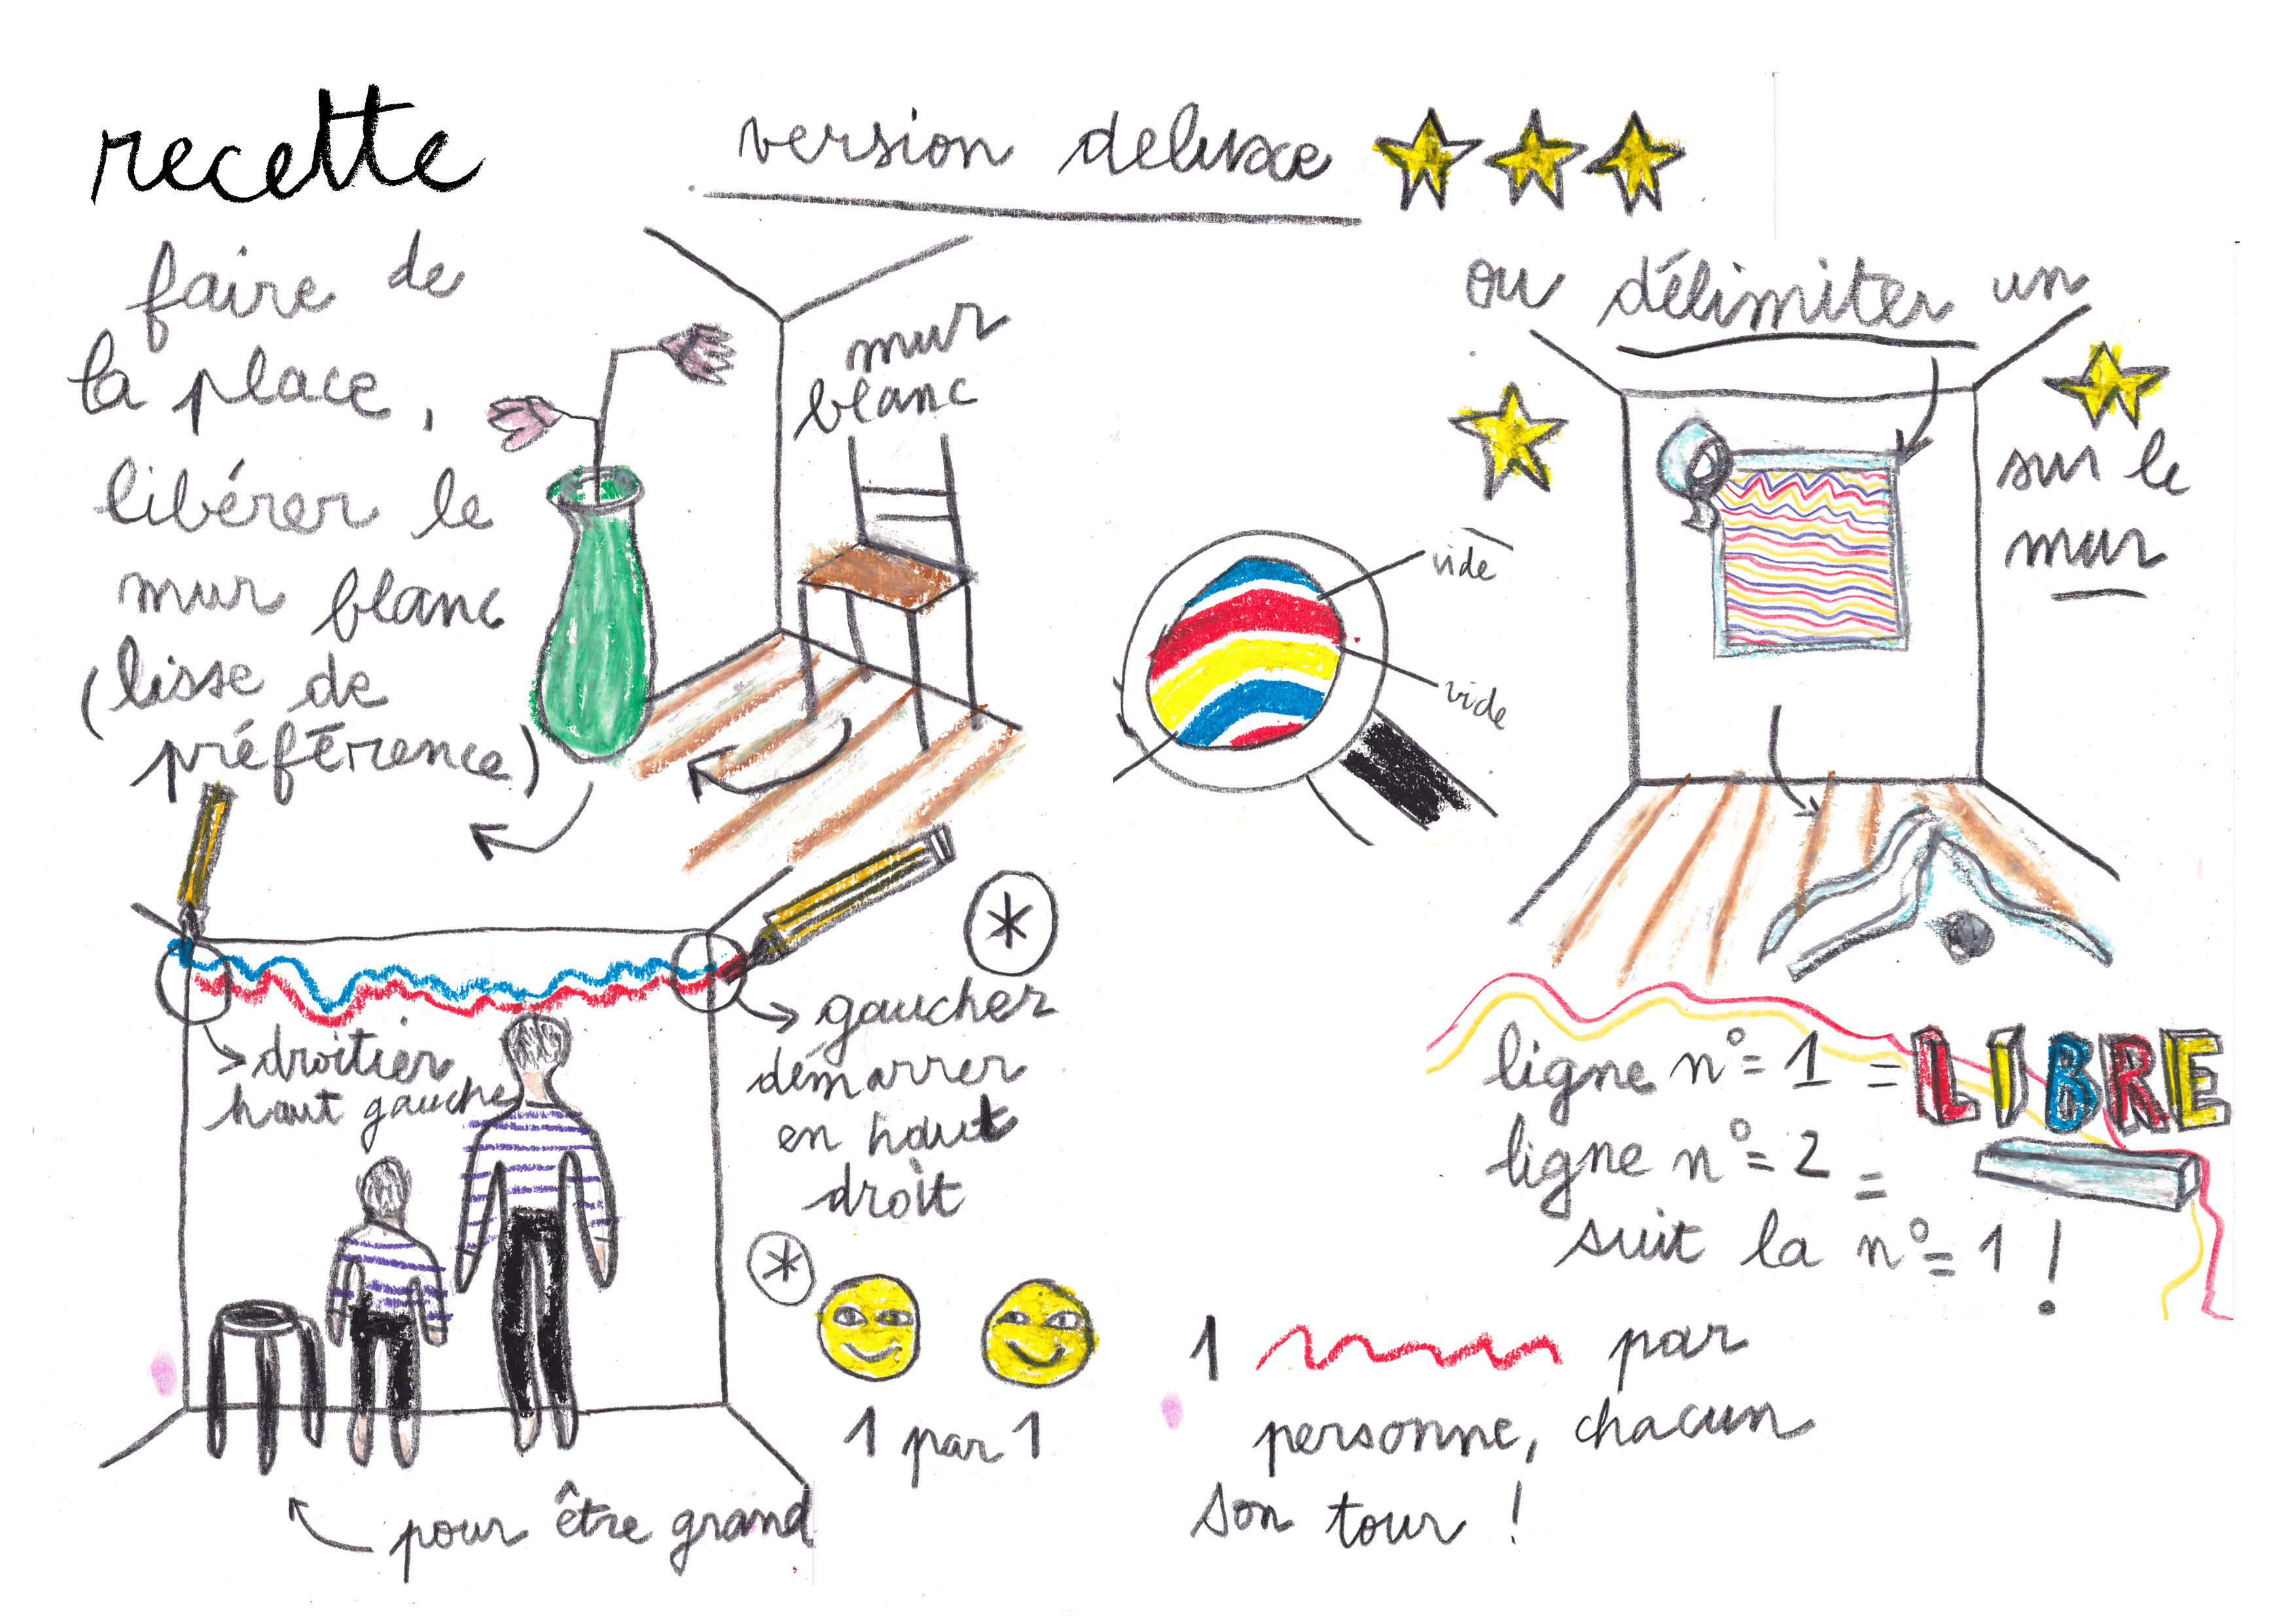 recette
version deluxe
faire de
la place,
libérer le
mur blanc
(lisse de
préférence)
mur
blanc
ou délimiter un
sur le
mur
vide
vide
*
droitier
haut gauche
gaucher
démarrer
en haut
droit
*
1 par 1
pour être grand
ligne n° 1 = LIBRE
ligne n° 2 =
suit la n° 1 !
1 par
personne, chacun
son tour !